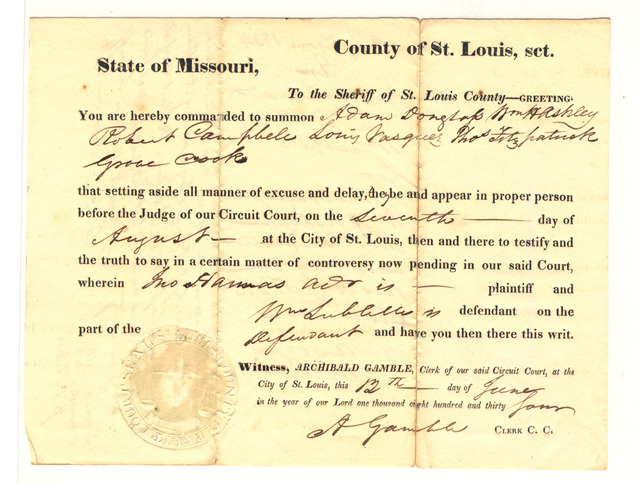 State of Missouri,
County of St. Louis, sct.
To the Sheriff of St. Louis County—GREETING:
You are hereby commanded to summon Adam Douglass Wm H Ashley
Robert Campbell Louis Vasquez Thos Fitzpatrick
Grove Cook
that setting aside all manner of excuse and delay, they be and appear in proper person
before the Judge of our Circuit Court, on the Seventh day of
August at the City of St. Louis, then and there to testify and
the truth to say in a certain matter of controversy now pending in our said Court,
wherein Jno adr is plaintiff and
Wm Sublette is defendant on the
part of the Defendant and have you then there this writ.
Witness, ARCHIBALD GAMBLE, Clerk of our said Circuit Court, at the
City of St. Louis, this 12th day of June
in the year of our Lord one thousand eight hundred and thirty four
A Gamble CLERK C. C.